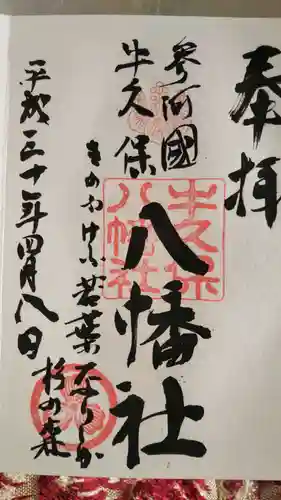 奉拝
参河國
牛久保
八幡社
牛久保
八幡社
きのやけふ若葉なりしか
杉の森
平成三十一年四月八日